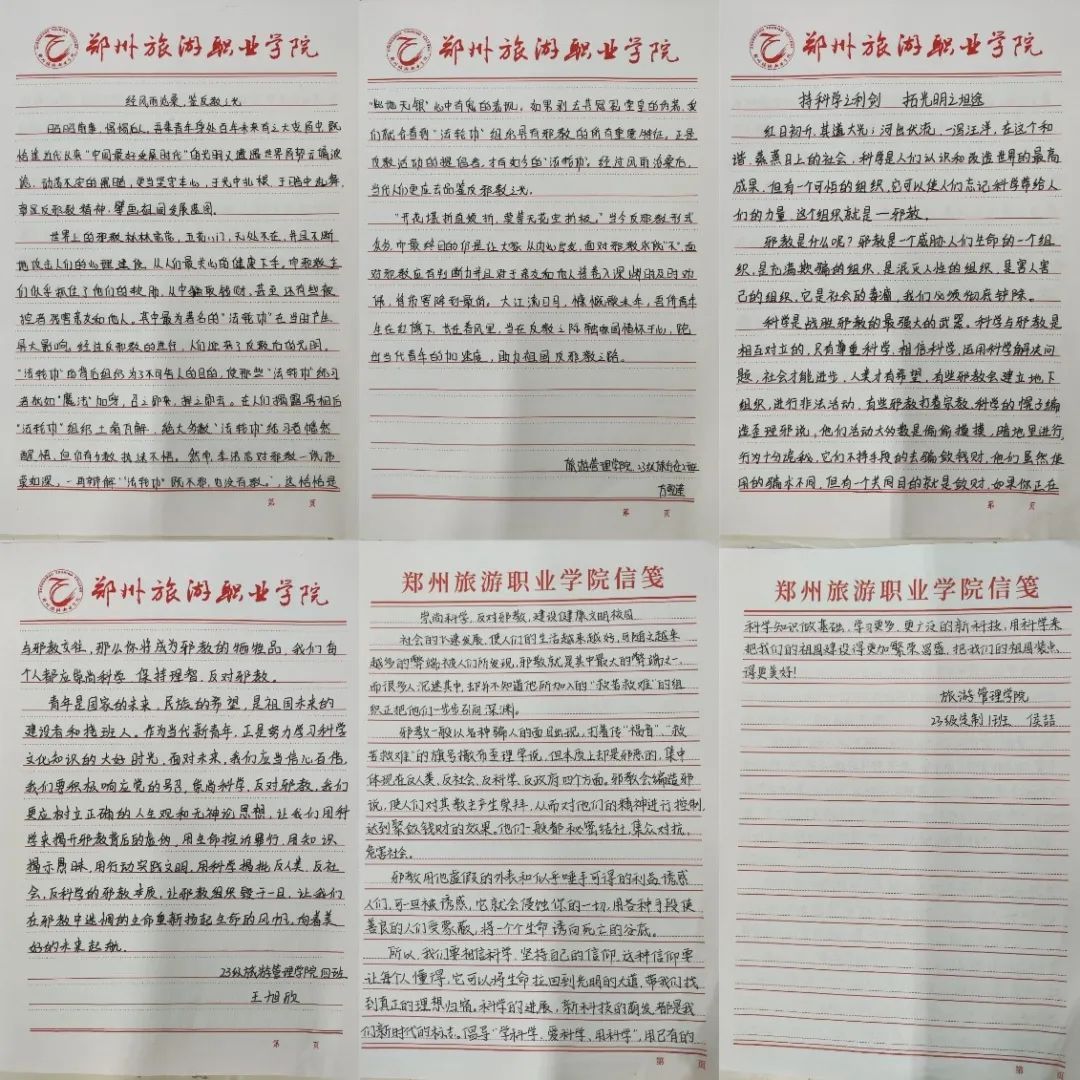 郑州旅游职业学院
经风雨沧桑,鉴反教之光
时时商事,惕惕后人,吾辈青年身处百年未有之大变局中,既
恰逢近代以来"中国最好发展时代"的光明又遭遇世界局势云谲波
诡,动荡不安的黑暗,更当坚守本心,于光中扎根,于暗中
反邪教精神,擘画祖国发展蓝图。
世界上的邪教林林总总,五花八门,无处不在,并且不断
地攻击人们的心理建设,从人们最关心的健康下手。邪教主
们似乎抓住了他们的软肋,从中骗取钱财,甚至还有些被
控者残害亲友和他人。其中最为著名的"法轮功"在当时产生
巨大影响。经过反邪教的进行,人们迎来了反教后的光明。
"法轮功"的背后组织为了不可告人的目的,使那些"法轮功"练习
者犹如"魔法"加身,召之即来,挥之即去。在人们揭露真相后
"法轮功"组织土崩瓦解,绝大多数"法轮功"练习者幡然
醒悟,但仍有少数执迷不悟。然而,李洪志对邪教一词
莫如深,一再辩解"法轮功"既不想,也没有教。",这恰恰是
第 页
郑州旅游职业学院
"此地无银"心中有鬼的表现,如果剥去其冠冕堂皇的伪装,我
们就会看到"法轮功"组织具有邪教的所有重要特征。正是
反教活动的提倡者,才有如今的"法轮功"。经过风雨沧桑后,
当代人们更应去面鉴反邪教之光。
"开花堪折直须折,莫等无花空折枝。"当今反邪教形式
众多,而最终目的仍是让大家从内心出发,面对邪教永说"不",面
对邪教应有判断力并且对于亲友和他人若卷入深渊时及时劝
阻,将危害降到最低。大江流日月,慷慨歌未年,吾侪青年
生在红旗下,长在春风里,当在反教之际融家国情怀于心,跑
出当代青年的加速度,助力祖国反邪教之路。
旅游管理学院 23级旅行社2班
第 页
郑州旅游职业学院
持科学之利剑 拓光明之坦途
红日初升,其道大光;河出伏流,一泻汪洋,在这个和
谐、蒸蒸日上的社会,科学是人们认识和改造世界的最高
成果,但有一个可怕的组织,它可以使人们忘记科学带给人
们的力量,这个组织就是—邪教。
邪教是什么呢?邪教是一个威胁人们生命的一个组
织,是充满欺骗的组织,是泯灭人性的组织,是害人害
己的组织,它是社会的毒瘤,我们必须彻底铲除。
科学是战胜邪教的最强大的武器。科学与邪教是
相互对立的,只有尊重科学,相信科学,运用科学解决问
题,社会才能进步,人类才有希望,有些邪教会建立地下
组织,进行非法活动,有些邪教打着宗教、科学的幌子编
造歪理邪说,他们活动大多数是偷偷摸摸,暗地里进行,
行为十分诡秘,它们不择手段的去骗敛钱财,他们虽然使
用的骗术不同,但有一个共同目的就是敛财,如果你正在
第 页
郑州旅游职业学院
与邪教交往,那么你将成为邪教的牺牲品,我们每
个人都应崇尚科学,保持理智,反对邪教。
青年是国家的未来,民族的希望,是祖国未来的
建设者和接班人。作为当代新青年,正是努力学习科学
文化知识的大好时光,面对未来,我们应当信心百倍,
我们要积极响应党的号召,崇尚科学,反对邪教,我们
更应树立正确的人生观和无神论思想,让我们用科
学来揭开邪教背后的虚伪,用生命控诉暴行,用知识
揭示愚昧,用行动实践文明,用科学揭批反人类、反社
会、反科学的邪教本质,让邪教组织毁于一旦,让我们
在邪教中迷惘的生命重新扬起生命的风帆,向着美
好的未来起航。
23级旅游管理学院四班
王旭欣
第 页
郑州旅游职业学院信笺
崇尚科学,反对邪教,建设健康文明校园
社会的飞速发展,使人们的生活越来越好,可随之越来
越多的弊端被人们所发现,邪教就是其中最大的弊端之一,
而很多人沉迷其中,却并不知道他所加入的"救苦救难"的组
织正把他们一步步引向深渊。
邪教一般以各种骗人的面目出现,打着传"福音","救
苦救难"的旗号散布歪理学说,但本质上却是邪恶的,集中
体现在反人类、反社会、反科学、反政府四个方面。邪教会编造邪
说,使人们对其教主产生崇拜,从而对他们的精神进行控制,
达到聚敛钱财的效果。他们一般都秘密结社,集众对抗,
危害社会。
邪教用他虚假的外表和似乎唾手可得的利益诱惑
人们,可一旦被诱惑,它就会侵蚀你的一切,用各种手段使
善良的人们受蒙蔽,将一个个生命诱向死亡的谷底。
所以,我们要相信科学,坚持自己的信仰,这种信仰要
让每个人懂得,它可以将生命拉回到光明的大道,带我们找
到真正的理想归宿。科学的进展,新科技的萌发,都是我
们新时代的标志。倡导"学科学、爱科学、用科学",用已有的
第 页
郑州旅游职业学院信笺
科学知识做基础,学习更多、更广泛的新科技,用科学来
把我们的祖国建设得更加繁荣昌盛,把我们的祖国装点
得更美好!
旅游管理学院
23级定制1班 侯喆
第 页